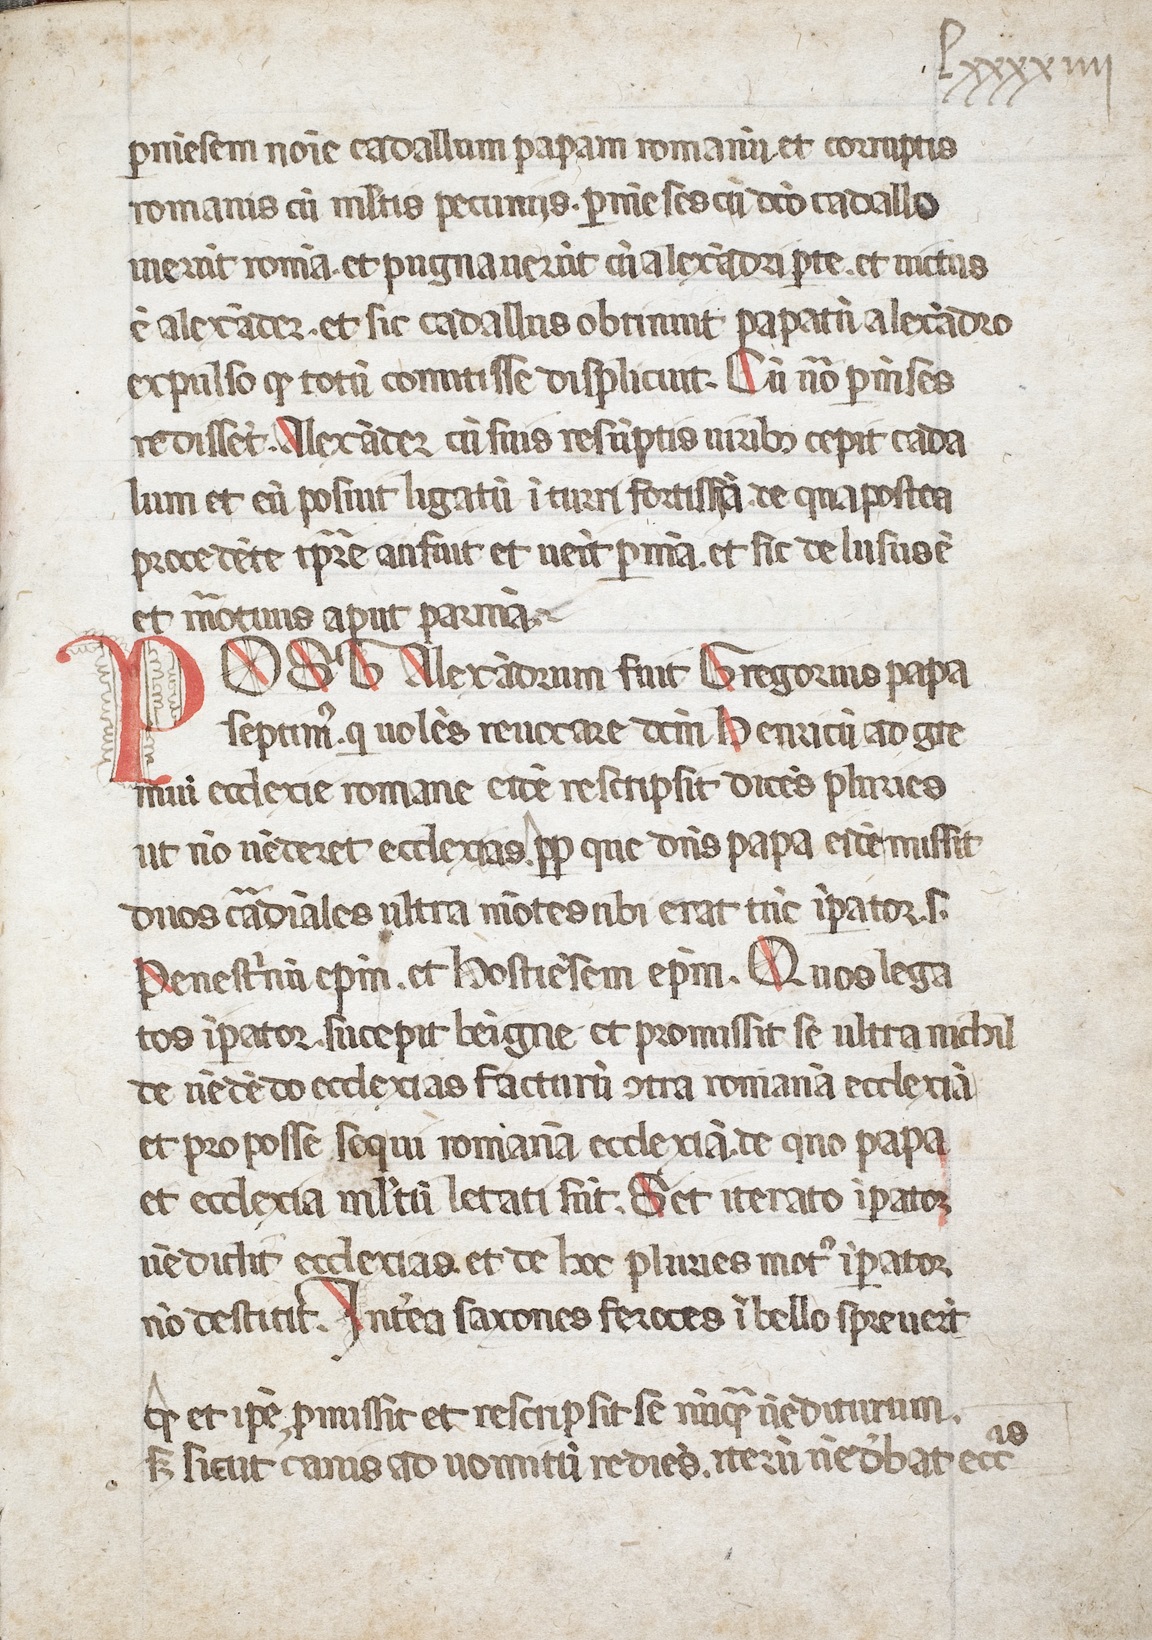 Lxxxxiiii
pmēsem noīe cadallum papam romanū et corruptis
romanis cū mlītis pecuniis. pmēses cū dco cadallo
iuerūt romā. et pugnauerūt cū alexādri pte. et uictus
ē alexāder. et sic cadallus obtinuit papatū alexādro
expulso qd totū comitisse displicuit. Cū nō pmēses
redisset. Alexāder cū suis resūptis uirib cepit cada
lum et eū posuit ligatū ī turri fortissīa. de qua postea
procedēte tpre aufuit et ueīt pmā. et sic delusus ē
et mortuus aput parmā.
POST Alexādrum fuit Gregorius papa
septim9. q uolēs reuocare dcm Henricū ad gre
miū ecclexie romane eidē rescripsit dicēs pluries
ut nō uēderet ecclexias. pp que dns papa eidē missit
duos cardīales ultra mōtes ubi erat tūc īpator. s.
Penestrīnū epm. et Hostiēsem epm. Quos lega
tos īpator. sucepit beīgne et promissit se ultra nichil
de uēdēdo ecclexias facturū ɔtra romanā ecclexiā
et pro posse sequi romanā ecclexiā. de quo papa
et ecclexia mltū letati sūt. Set iterato īpator
uēdidit ecclexias. et de hoc pluries mot9 īpator
nō destitit. Intēa saxones feroces ī bello spreuerūt
qd et ipē pmissit et rescripsit se nūqā uēditurum.
s; sicut canis ad uomitū rediēs. iterū uēdebat ecc
as